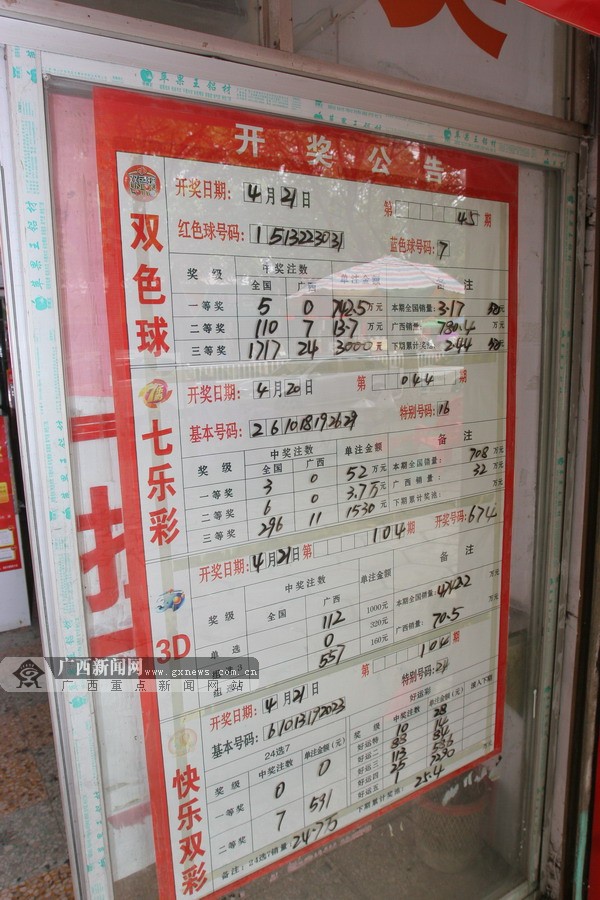 苹果王铝材
苹果王铝材
开奖公告
双色球
开奖日期: 4月21日 第 45 期
红色球号码: 1 5 13 22 30 31 蓝色球号码: 7
奖级 中奖注数 单注金额 备注
全国 广西
一等奖 5 0 742.5万元 本期全国销量: 3.17
二等奖 110 7 13.7万元 广西销量: 780.4万元
三等奖 1717 24 3000元 下期累计奖池: 2.44
七乐彩
开奖日期: 4月20日 第 044 期
基本号码: 2 6 10 18 19 26 29 特别号码: 16
奖级 中奖注数 单注金额 备注
全国 广西
一等奖 3 0 52万元 本期全国销量: 708万元
二等奖 6 0 3.7万元 广西销量: 32万元
三等奖 296 11 1530元 下期累计奖池: 万元
3D
开奖日期: 4月21日 第 104 期 开奖号码: 674
奖级 中奖注数 单注金额 备注
全国 广西
单选 112 1000元 本期全国销量: 万元
0 320元 广西销量: 70.5万元
557 160元
广西新闻网 www.gxnews.com.cn
广西重点新闻网站
快乐双彩
开奖日期: 4月21日 第 104 期
基本号码: 6 10 13 19 20 23 特别号码: 24
24选7 好运彩
奖级 中奖注数 单注金额(元) 奖级 中奖注数 单注金额(元) 滚入下期
一等奖 0 0
二等奖 7 531
好运特 10 28
好运一
好运二
好运三
好运四
好运五
备注: 24选7销量: 24.7万 下期累计奖池: 25.4